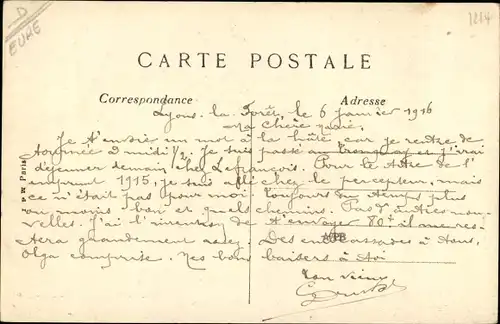 D
EURE
1214
CARTE POSTALE
Correspondance
Adresse
Lyons-la-Forêt, le 6 janvier 1916
Ma chère
Je t'envoie un mot à la hâte, car je rentre de
tournée à midi ½. Je suis passé au et j'irai
déjeuner demain chez Lefrançois. Pour la de l'
emprunt 1915, je suis allé chez le percepteur, mais
ce n'était pas pour moi. Toujours du temps plus
ou moins bon et quels chemins. Pas d'autres nou-
velles. J'ai l' de t'envoyer 80f. il me res-
tera grandement assez. Des embrassades à tous,
Olga comprise. Mes bons baisers à toi
Ton vieux
Paris